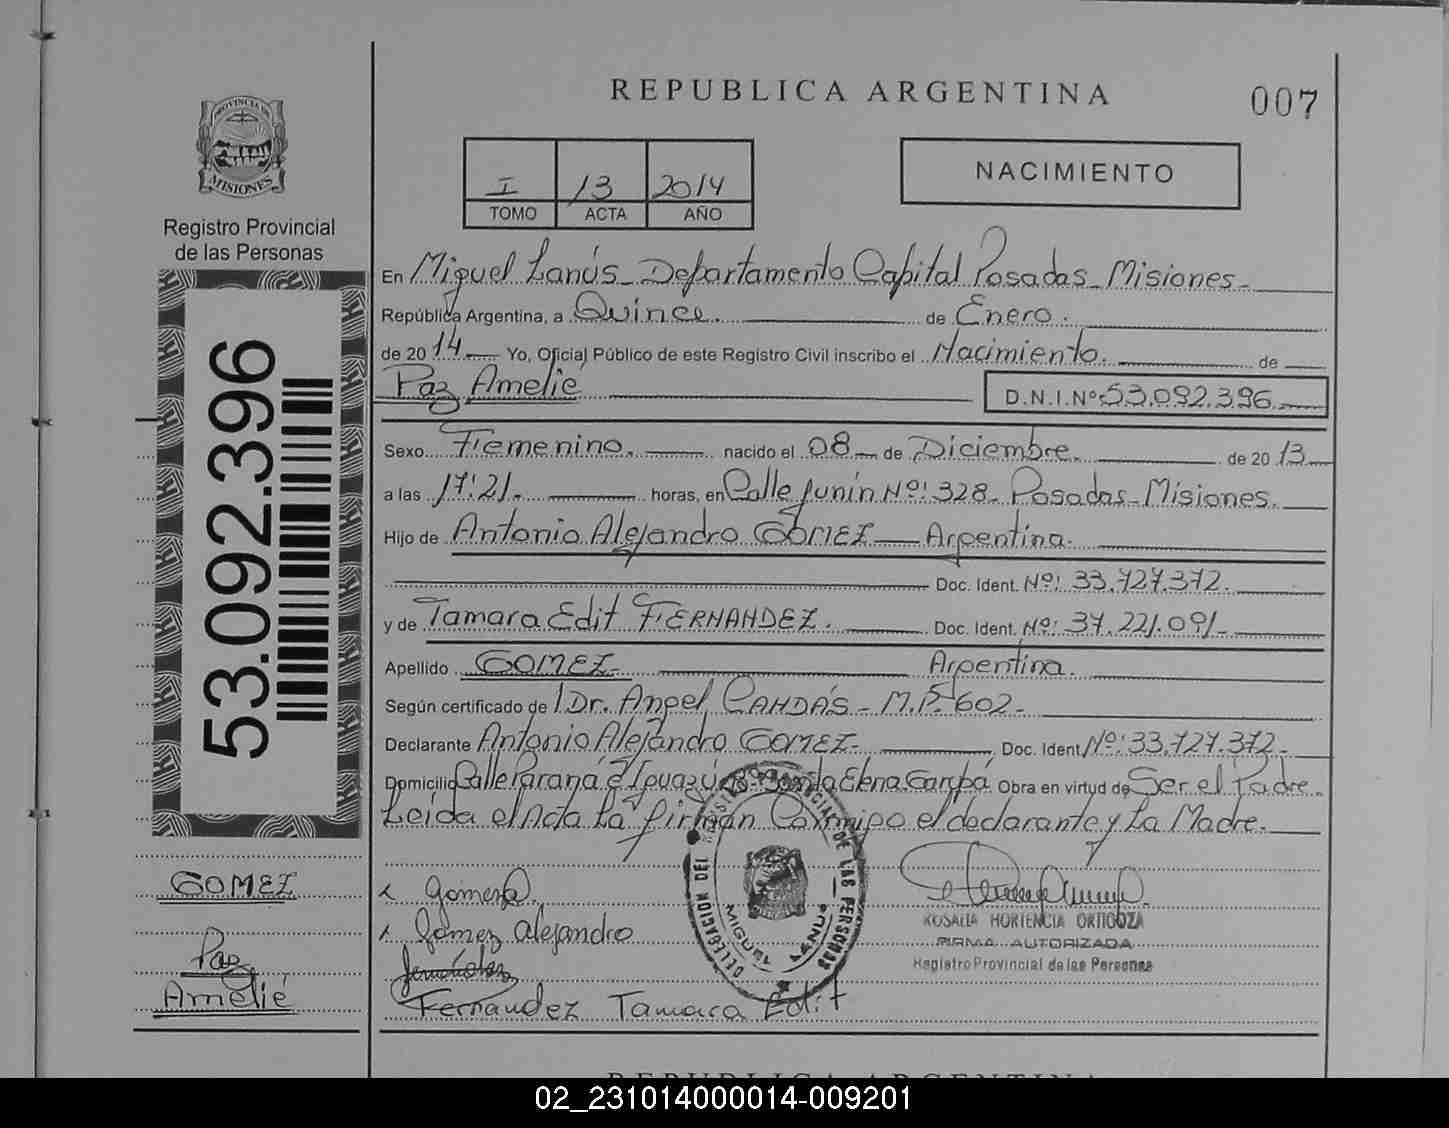 REPUBLICA ARGENTINA
007
PROVINCIA DE
MISIONES
Registro Provincial
de las Personas
I 13 2014
TOMO ACTA AÑO
NACIMIENTO
En Miguel Lanús - Departamento Capital Posadas - Misiones -
República Argentina, a Quince. de Enero.
de 2014 Yo, Oficial Público de este Registro Civil inscribo el Nacimiento. de
Paz Amelié
D.N.I.Nº: 53.092.396
Sexo Femenino. nacido el 08 de Diciembre. de 2013
a las 17:21. horas, en Calle Junín Nº: 328 - Posadas - Misiones.
Hijo de Antonio Alejandro GOMEZ Argentina.
Doc. Ident. Nº: 33.727.372.
y de Tamara Edit FERNANDEZ. Doc. Ident. Nº: 37.221.091 -
Apellido GOMEZ - Argentina.
Según certificado de Dr. Angel CANDÁS - M.P. 602 -
Declarante Antonio Alejandro GOMEZ - Doc. Ident. Nº: 33.727.372 -
Domicilio Calle Paraná e Iguazú Santa Elena Garupá Obra en virtud de Ser el Padre.
Leída el Acta La firman Conmigo el declarante y La Madre.
53.092.396
GOMEZ
Paz
Amelié
Gomez
Gomez alejandro
Fernandez Tamara Edit
DELEGACION DEL REGISTRO PROVINCIAL DE LAS PERSONAS
MIGUEL LANUS
ROSALIA HORTENCIA ORTIGOZA
FIRMA AUTORIZADA
Registro Provincial de las Personas
REPUBLICA ARGENTINA
02_231014000014-009201